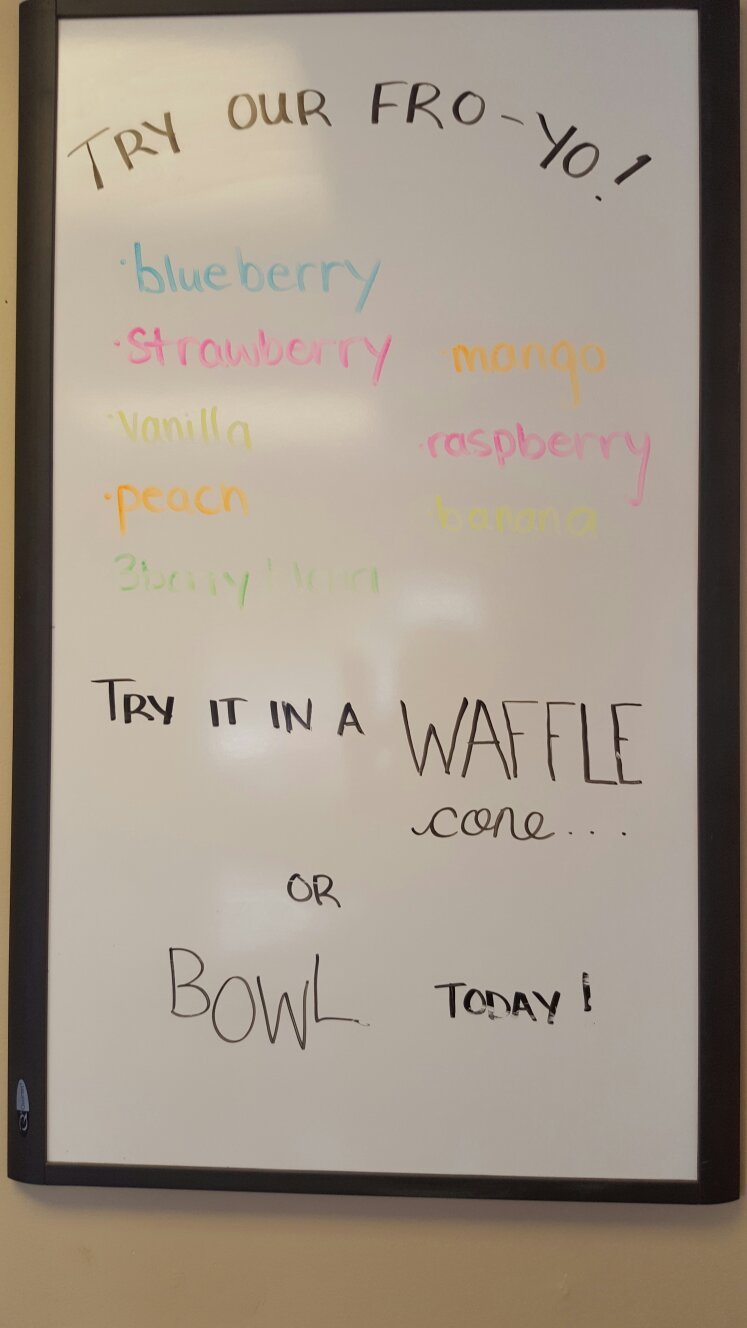 TRY OUR FRO-YO!
·blueberry
·Strawberry
·Vanilla
·peach
3berry blend
·mango
·raspberry
·banana
TRY IT IN A WAFFLE
cone...
OR
BOWL TODAY!